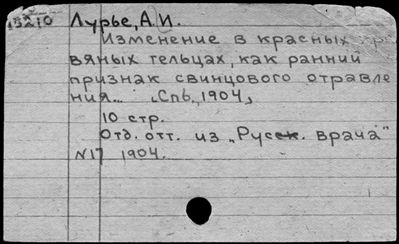 15210 Лурье, А.И.
Изменение в красных кро
вяных тельцах, как ранний
признак свинцового отравле
ния... [Спб, 1904]
10 стр.
Отд. отт. из „Русск. врача"
N17 1904.